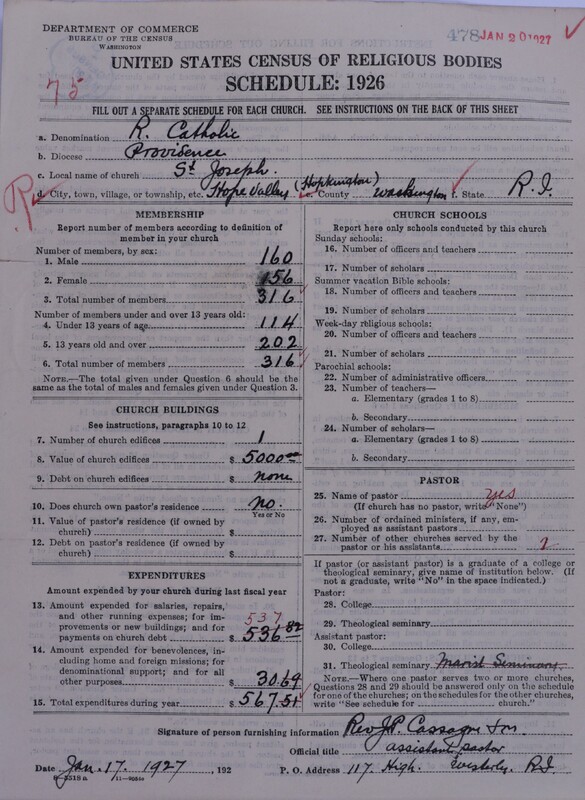 DEPARTMENT OF COMMERCE
BUREAU OF THE CENSUS
WASHINGTON
478 JAN 20 1927
UNITED STATES CENSUS OF RELIGIOUS BODIES
SCHEDULE: 1926
75
FILL OUT A SEPARATE SCHEDULE FOR EACH CHURCH. SEE INSTRUCTIONS ON THE BACK OF THIS SHEET
a. Denomination R. Catholic
b. Diocese Providence
c. Local name of church St Joseph.
R
d. City, town, village, or township, etc. Hope Valley (Hopkington) e. County Washington f. State R.I.
MEMBERSHIP
Report number of members according to definition of
member in your church
Number of members, by sex:
1. Male 160
2. Female 156
3. Total number of members 316
Number of members under and over 13 years old:
4. Under 13 years of age 114
5. 13 years old and over 202
6. Total number of members 316
NOTE.—The total given under Question 6 should be
same as the total of males and females given under Question 3.
CHURCH BUILDINGS
See instructions, paragraphs 10 to 12
7. Number of church edifices 1
8. Value of church edifices $ 5000.00
9. Debt on church edifices $ none
10. Does church own pastor's residence? no.
Yes or No
11. Value of pastor's residence (if owned by
church) $
12. Debt on pastor's residence (if owned by
church) $
EXPENDITURES
Amount expended by your church during last fiscal year
13. Amount expended for salaries, repairs,
and other running expenses; for im-
provements or new buildings; and for
payments on church debt $ 536.82
537
14. Amount expended for benevolences,
including home and foreign missions; for
denominational support; and for all
other purposes $ 30.69
15. Total expenditures during year $ 567.51
CHURCH SCHOOLS
Report here only schools conducted by this church
Sunday schools:
16. Number of officers and teachers
17. Number of scholars
Summer vacation Bible schools:
18. Number of officers and teachers
19. Number of scholars
Week-day religious schools:
20. Number of officers and teachers
21. Number of scholars
Parochial schools:
22. Number of administrative officers
23. Number of teachers—
a. Elementary (grades 1 to 8)
b. Secondary
24. Number of scholars—
a. Elementary (grades 1 to 8)
b. Secondary
PASTOR
25. Name of pastor yes
(If church has no pastor, write "None")
26. Number of ordained ministers, if any, em-
ployed as assistant pastors
27. Number of other churches served by the
pastor or his assistants
If pastor (or assistant pastor) is a graduate of a college or
theological seminary, give name of institution below. (If
not a graduate, write "No" in the space indicated.)
Pastor:
28. College
29. Theological seminary
Assistant pastor:
30. College
31. Theological seminary Marist Seminary
NOTE.—Where one pastor serves two or more churches,
Questions 28 and 29 should be answered only on the schedule
for one of the churches; on the schedules for the other churches,
write "See schedule for church."
Signature of person furnishing information Rev J.P. Cassagne
Official title assistant pastor
Date Jan. 17. 1927, 192 P. O. Address 117. High. Westerly. R.I.